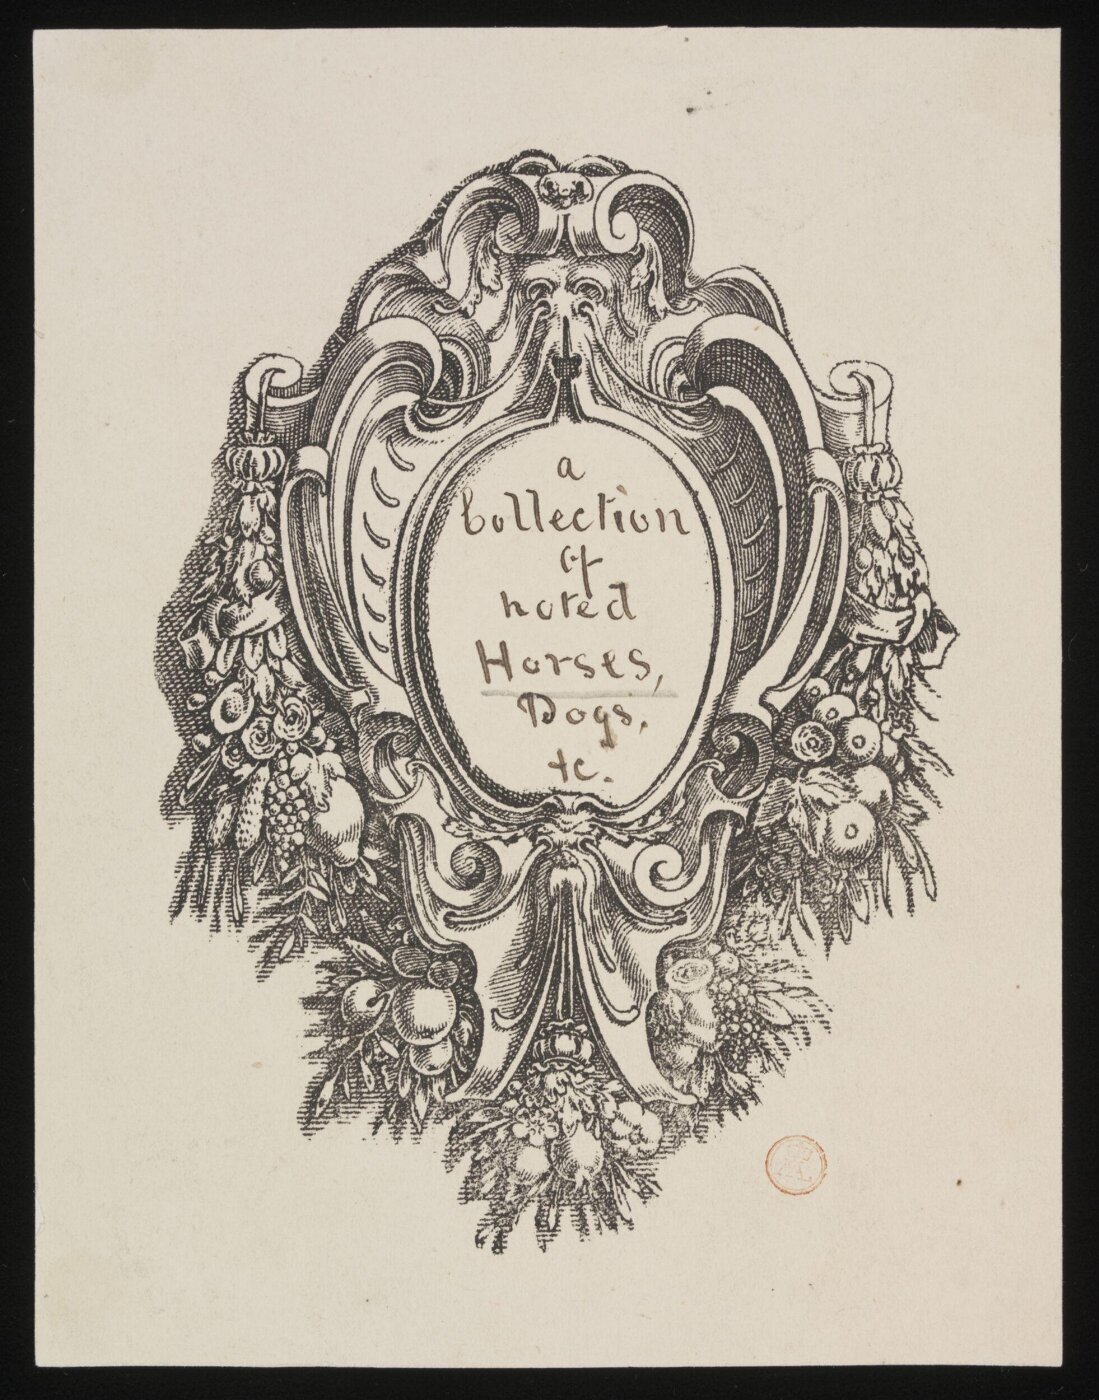 a
Collection
of
noted
Horses,
Dogs,
&c.